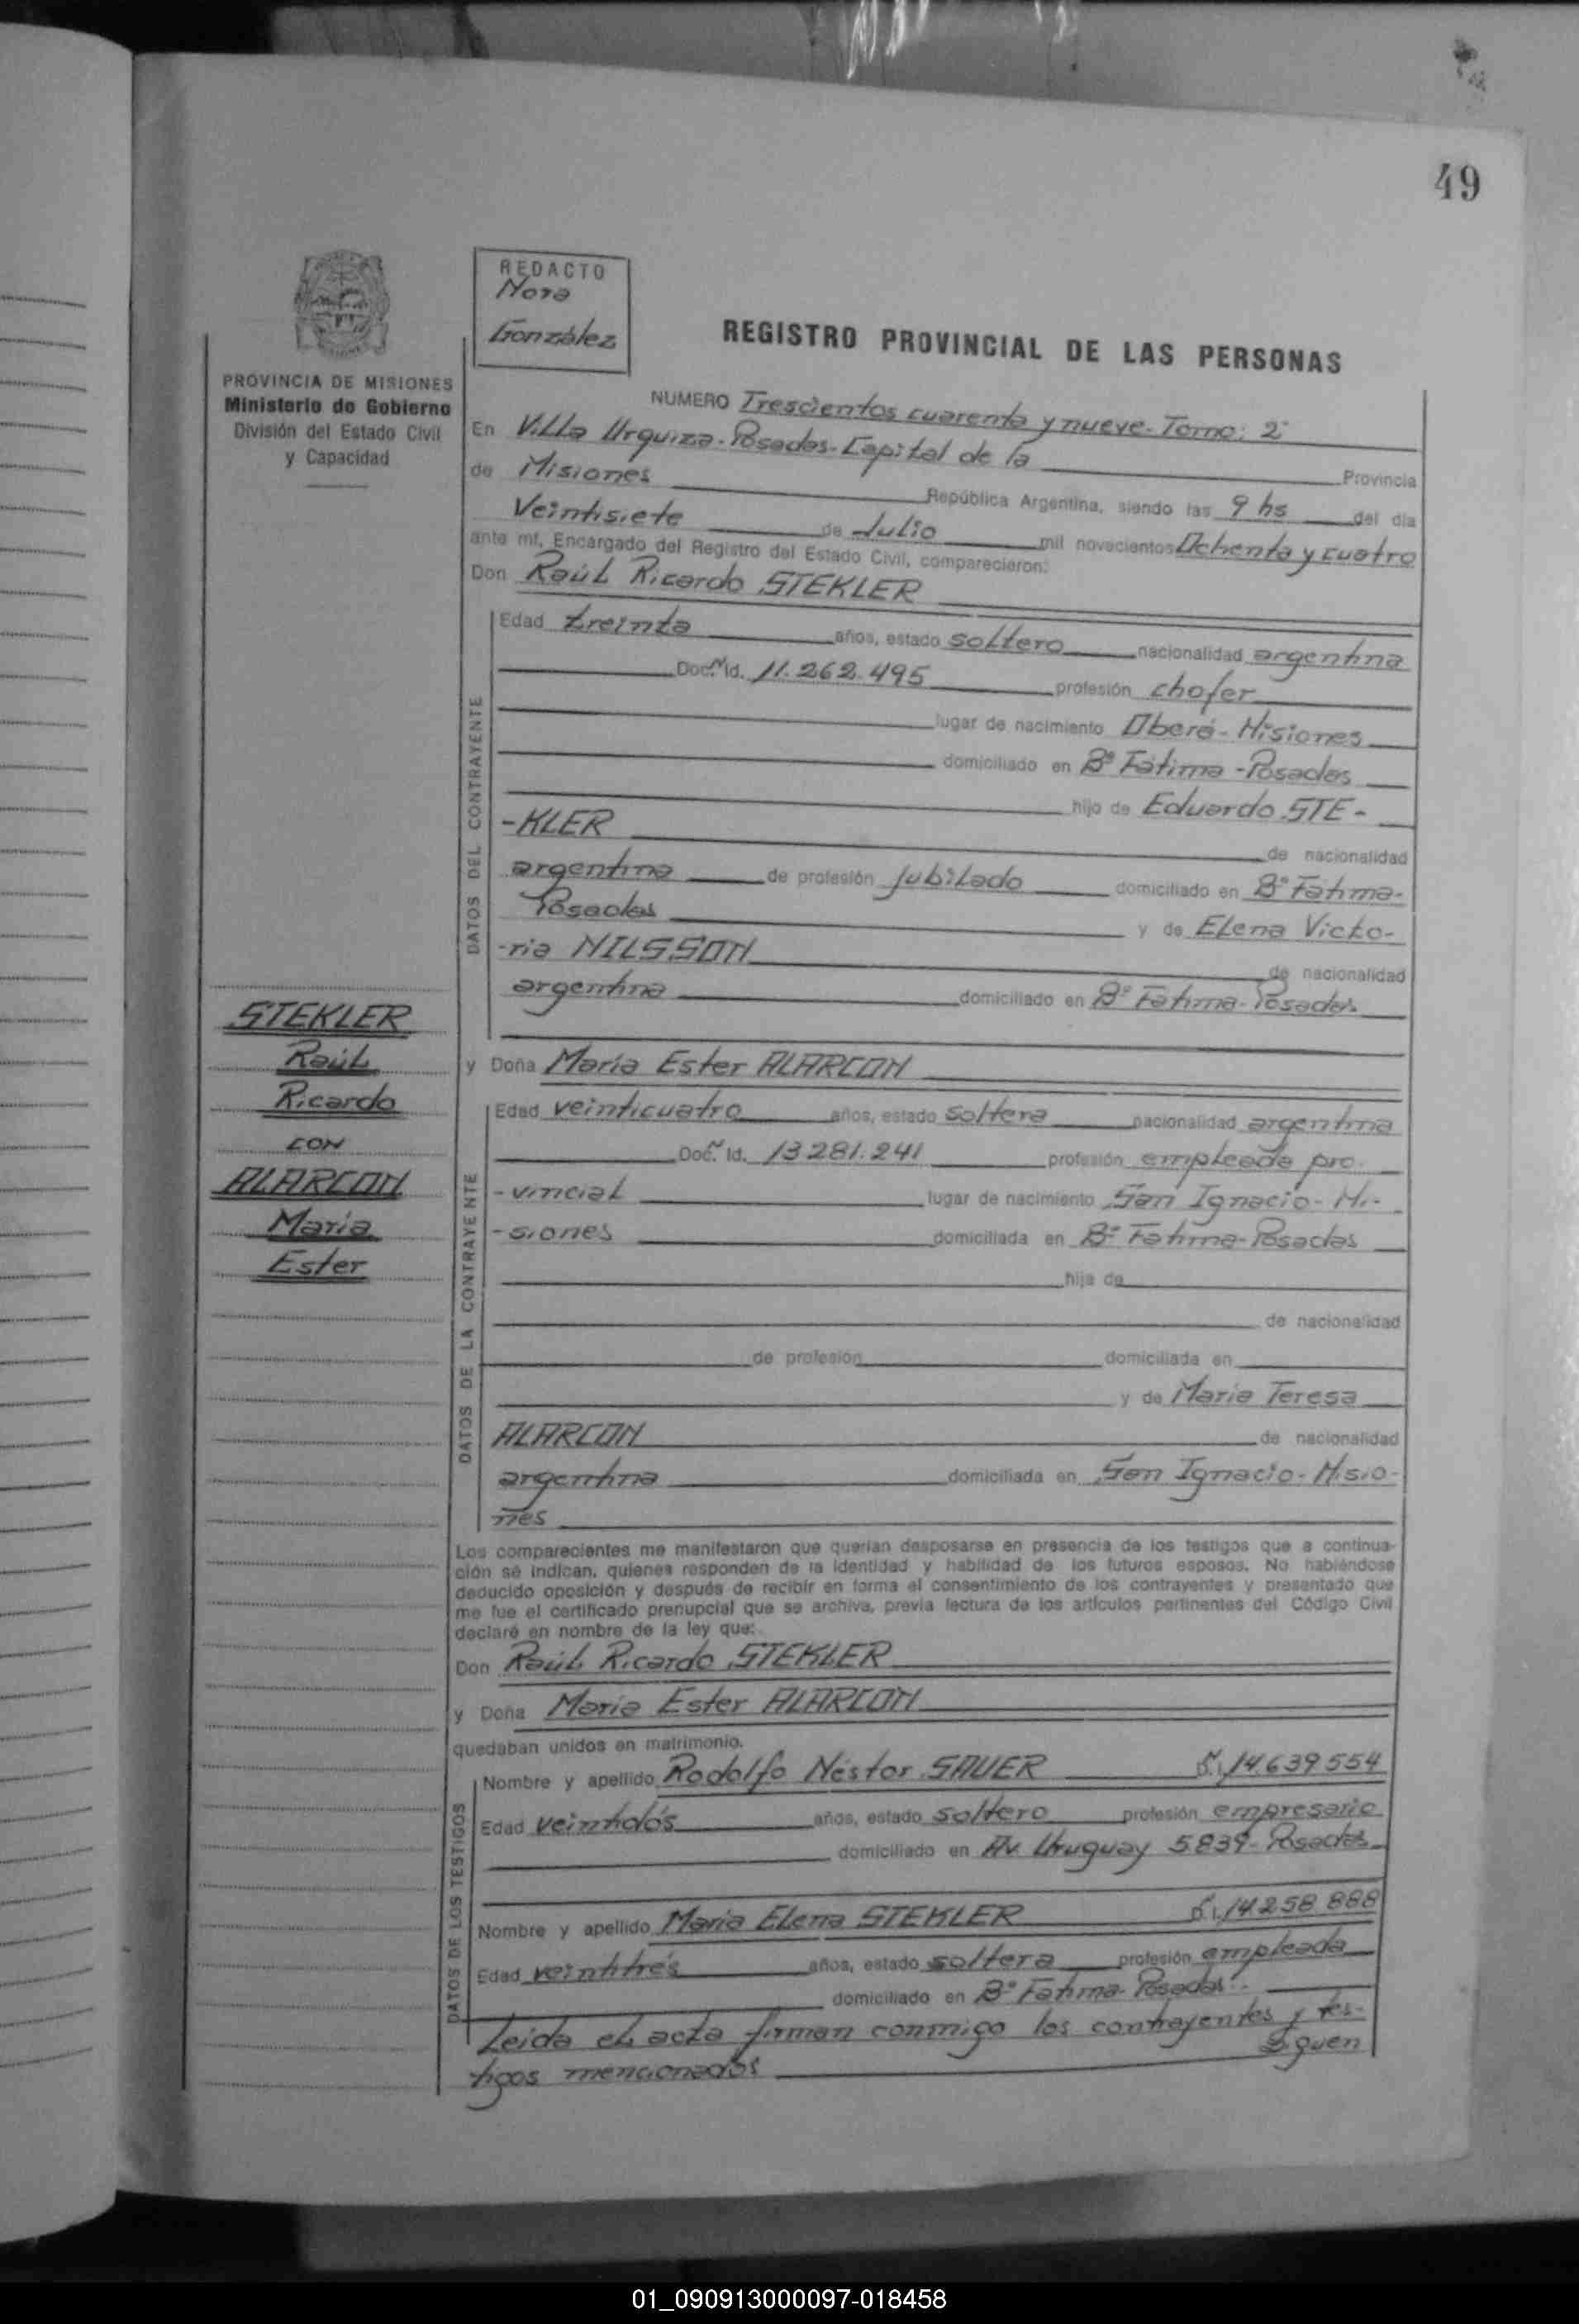 49
REDACTO
Nora
González
PROVINCIA DE MISIONES
Ministerio de Gobierno
División del Estado Civil
y Capacidad
REGISTRO PROVINCIAL DE LAS PERSONAS
NUMERO Trescientos cuarenta y nueve - Tomo: 2°
En Villa Urquiza - Posadas - Capital de la Provincia
de Misiones República Argentina, siendo las 9 hs del día
Veintisiete de Julio mil novecientos Ochenta y cuatro
ante mí, Encargado del Registro del Estado Civil, comparecieron:
Don Raúl Ricardo STEKLER
DATOS DEL CONTRAYENTE
Edad treinta años, estado soltero nacionalidad argentina
Doc. N Id. 11.262.495 profesión chofer
lugar de nacimiento Oberá - Misiones
domiciliado en B° Fátima - Posadas
hijo de Eduardo STE-
-KLER de nacionalidad
argentina de profesión Jubilado domiciliado en B° Fátima-
Posadas y de Elena Victo-
-ria NILSSON de nacionalidad
argentina domiciliado en B° Fátima - Posadas
STEKLER
Raúl
Ricardo
CON
ALARCON
María
Ester
y Doña María Ester ALARCON
DATOS DE LA CONTRAYENTE
Edad veinticuatro años, estado soltera nacionalidad argentina
Doc. N Id. 13281.241 profesión empleada pro-
-vincial lugar de nacimiento San Ignacio - Mi-
-siones domiciliada en B° Fátima - Posadas
hija de
de nacionalidad
de profesión domiciliada en
y de María Teresa
ALARCON de nacionalidad
argentina domiciliada en San Ignacio - Misio-
nes
Los comparecientes me manifestaron que querían desposarse en presencia de los testigos que a continua-
ción se indican, quienes responden de la identidad y habilidad de los futuros esposos. No habiéndose
deducido oposición y después de recibir en forma el consentimiento de los contrayentes y presentado que
me fue el certificado prenupcial que se archiva, previa lectura de los artículos pertinentes del Código Civil
declaré en nombre de la ley que:
Don Raúl Ricardo STEKLER
y Doña María Ester ALARCON
quedaban unidos en matrimonio.
DATOS DE LOS TESTIGOS
Nombre y apellido Rodolfo Néstor SAUER 14.639.554
Edad veintidós años, estado soltero profesión empresario
domiciliado en Av. Uruguay 5839 - Posadas
Nombre y apellido María Elena STEKLER 14.258.888
Edad veintitrés años, estado soltera profesión empleada
domiciliado en B° Fátima - Posadas.
Leída el acta firman conmigo los contrayentes y tes-
tigos mencionados Siguen
01_090913000097-018458